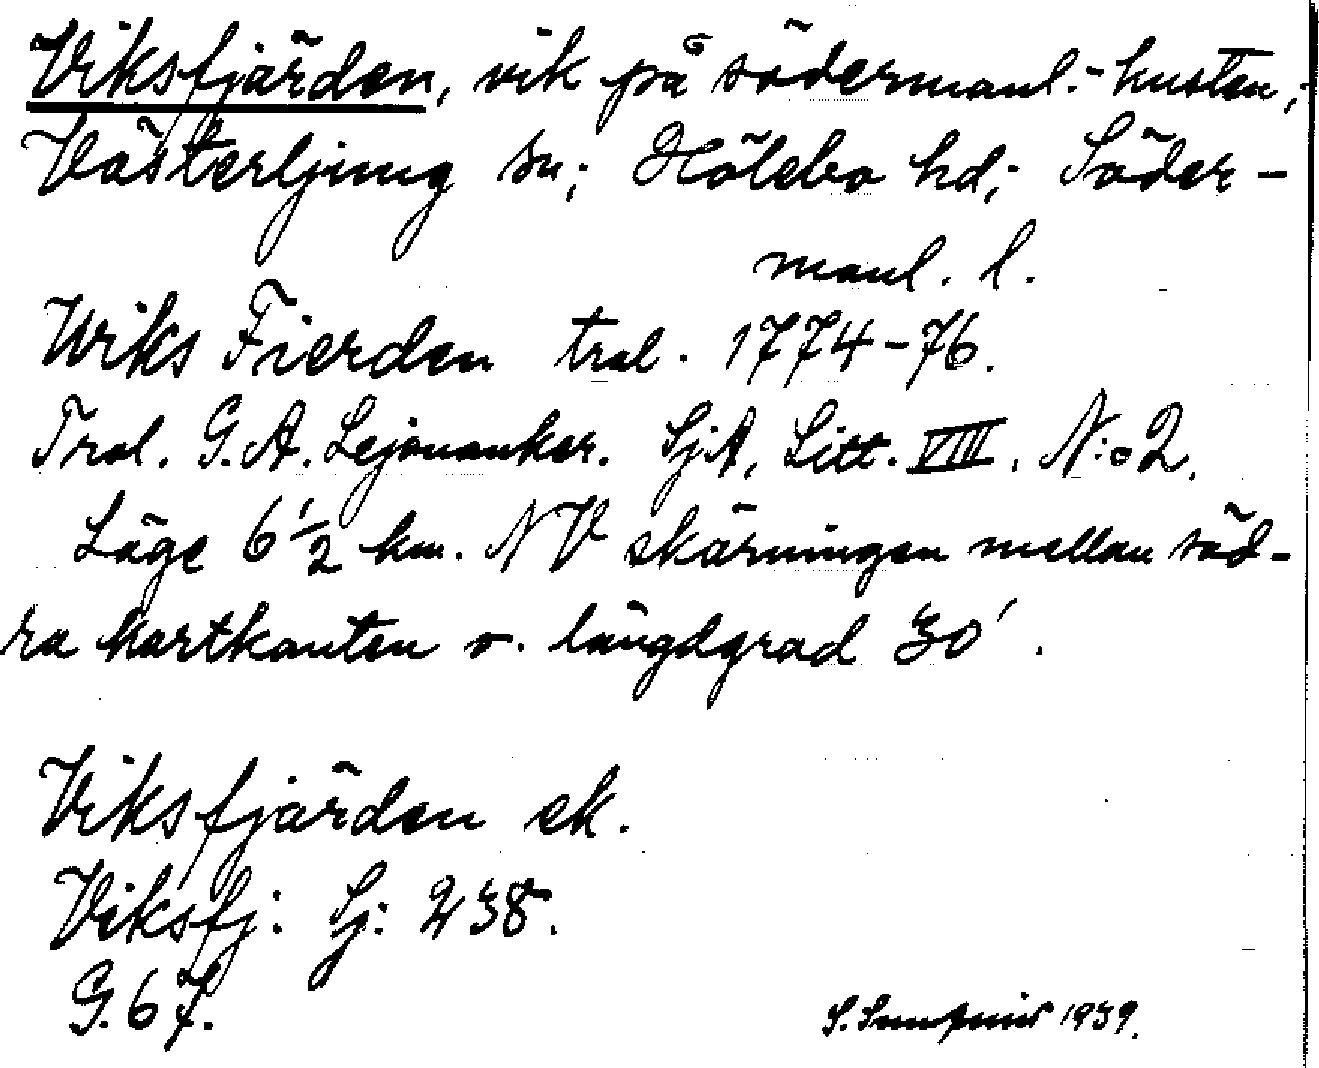 Viksfjärden, vik på södermanl.-kusten;
Västerljung sn; Hölebo hd; Söder-
manl. l.
Wiks Fierden tral. 1774-76.
Tral. G. A. Lejonanker. SjA, Litt. VIII. N:o 2.
Läge 6 1/2 km. NV skärningen mellan söd-
ra kartkanten o. längdgrad 30'.
Viksfjärden ek.
Viksfj: Sj: 238.
G. 67.
S. 1939.